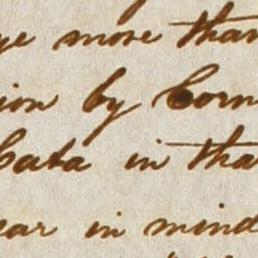 ge more than
ion by Corn
Cata in tha
ear in mind